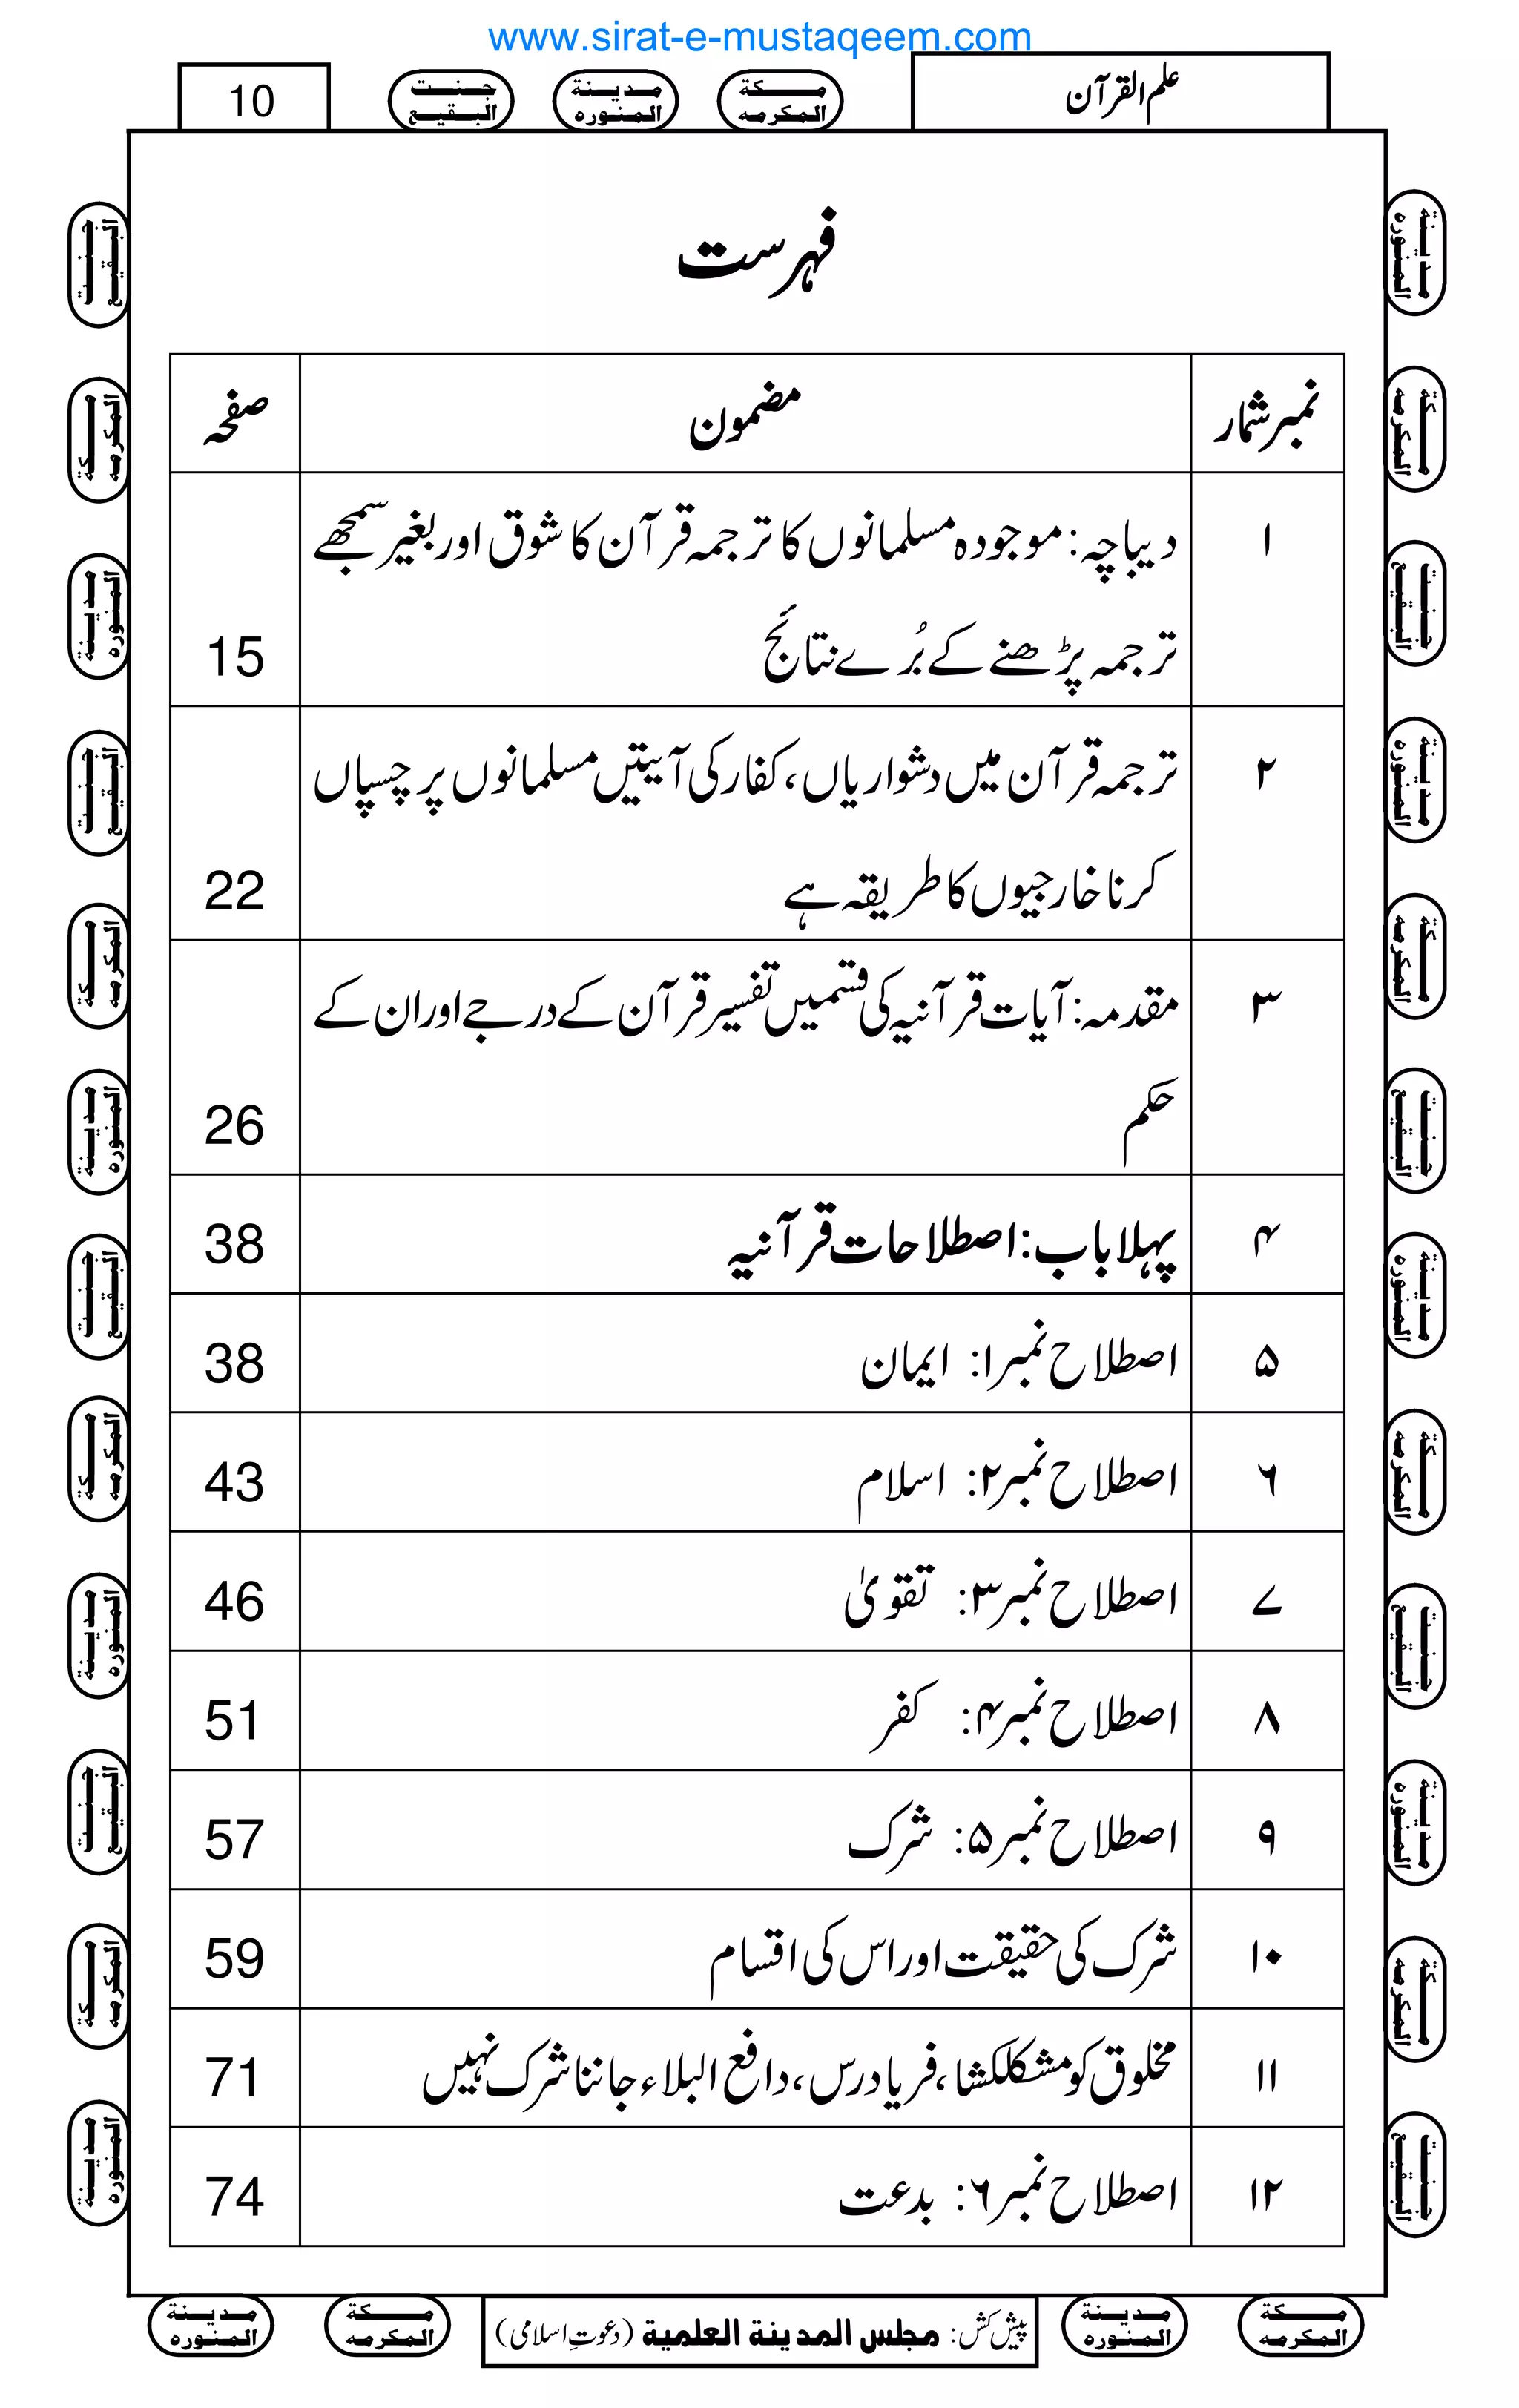 www.sirat-e-mustaqeem.com
علم القرآن
مـكة المكرمه
مدينة المنوره
جنت البقيع
10
فہرست
نمبر شمار مضمون صفحہ
۱ دیباچہ: موجودہ مسلمانوں کا ترجمہ قرآن کا شوق اور بغیر سمجھے
ترجمہ پڑھنے کے بُرے نتائج 15
۲ ترجمہ قرآن میں دشواریاں، کفار کی آیتیں مسلمانوں پر چسپاں
کرنا خارجیوں کا طریقہ ہے 22
۳ مقدمہ: آیات قرآنیہ کی قسمیں تفسیرِ قرآن کے درجے اور ان کے
حکم 26
۴ پہلا باب: اصطلاحات قرآنیہ 38
۵ اصطلاح نمبر۱: ایمان 38
۶ اصطلاح نمبر۲: اسلام 43
۷ اصطلاح نمبر۳: تقویٰ 46
۸ اصطلاح نمبر۴: کفر 51
۹ اصطلاح نمبر۵: شرک 57
۱۰ شرک کی حقیقت اور اس کی اقسام 59
۱۱ مخلوق کو مشکلکشا، فریادرس، دافع البلاء جاننا شرک نہیں 71
۱۲ اصطلاح نمبر۶: بدعت 74
مكة المكرمه
مدينة المنوره
پیش کش: مجلس المدينة العلمية (دعوتِ اسلامی)
مكة المكرمه
مدينة المنوره